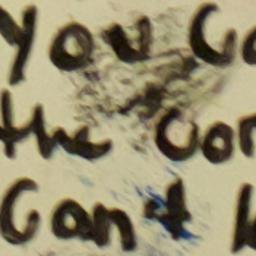 you Co
the Con
Can't k